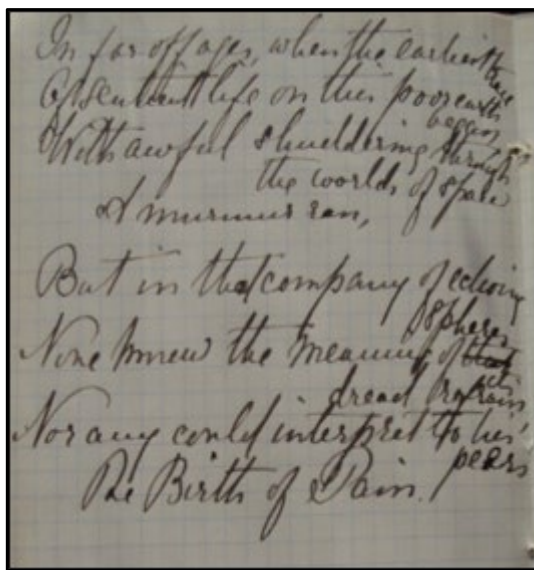 In far off ages, when the earliest trace
Of sentient life on this poor earth
began,
With awful shuddering through
the worlds of space
A murmur ran,
But in that company of echoing
spheres
None knew the meaning of that
its
dread refrain,
Nor any could interpret to his
peers
The Birth of Pain.